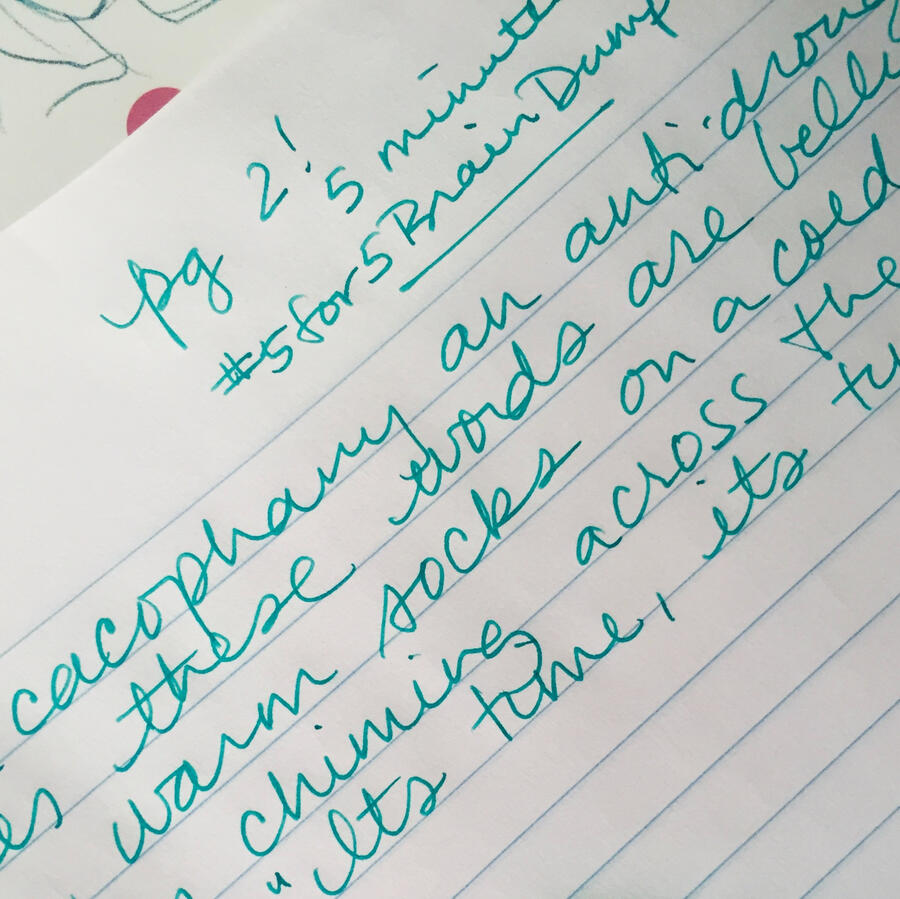 pg 2! 5 minute
#5for5BrainDump
cacophany an anti-drone
these words are bells
warm socks on a cold
chiming across the
"Its time, its